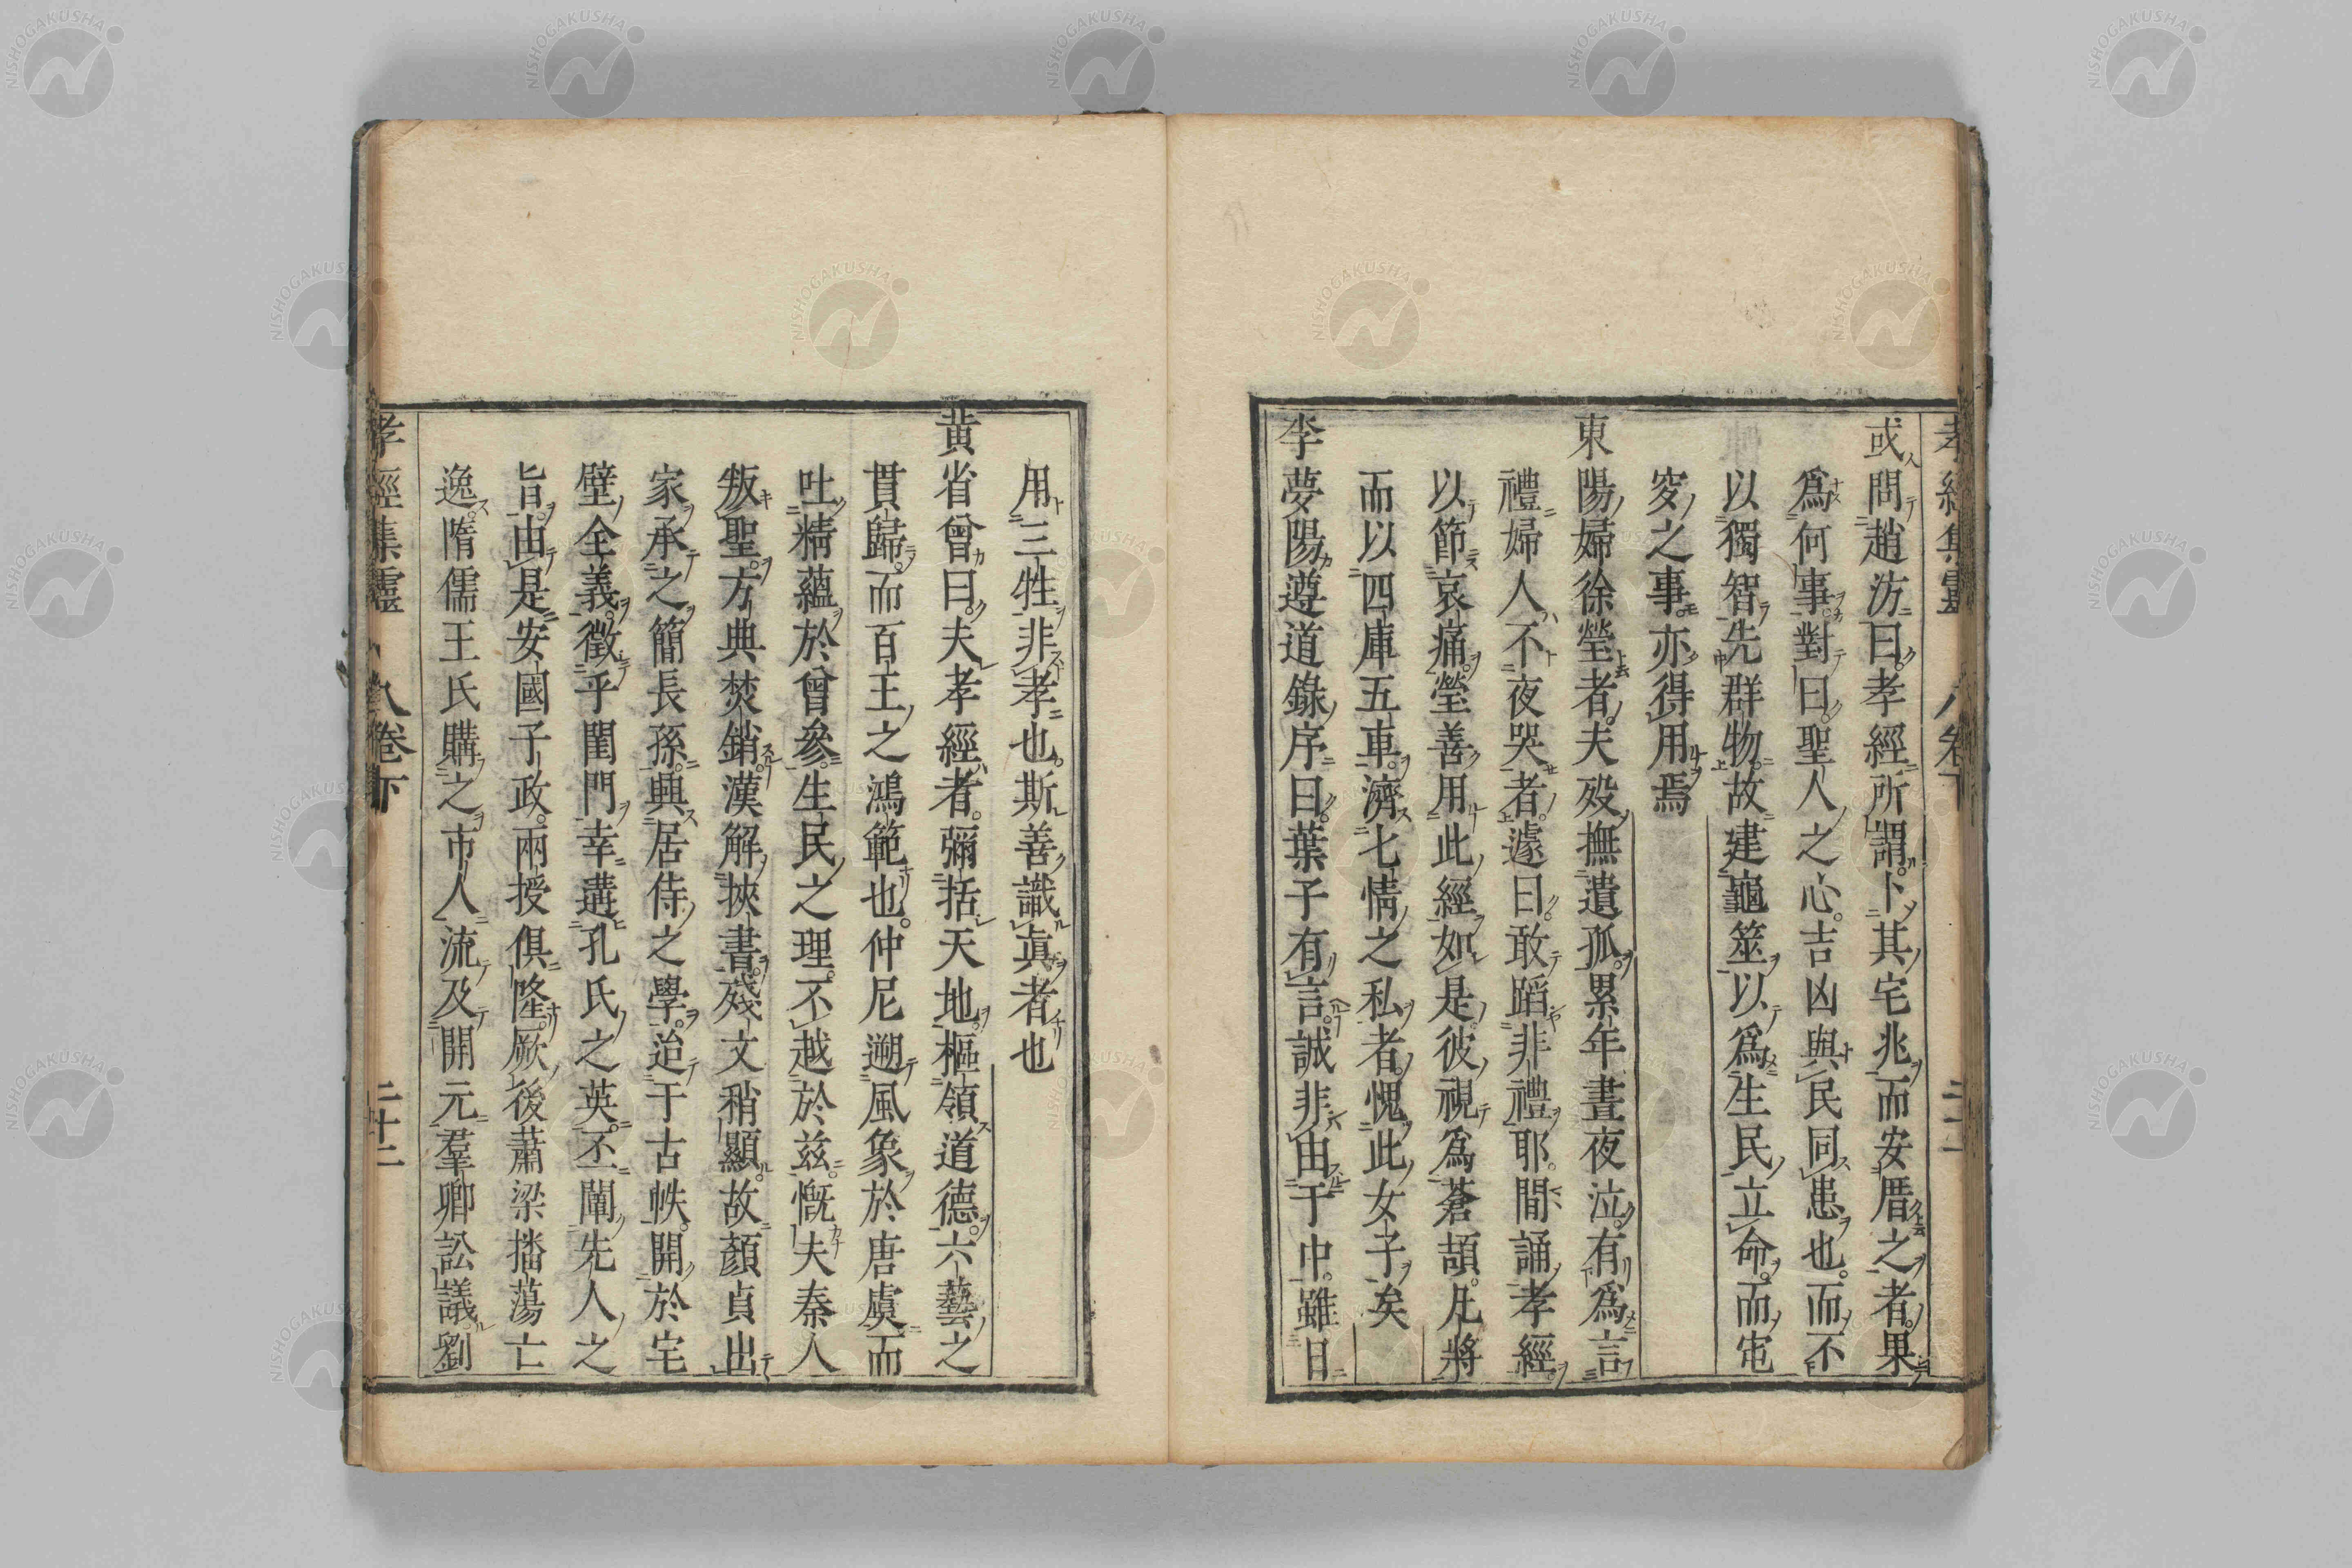 或問趙汸曰孝經所謂卜其宅兆而安厝之者果
爲何事對曰聖人之心吉凶與民同患也而不
以獨智先群物故建龜筮以爲生民立命而窀
穸之事亦得用焉
東陽婦徐瑩者夫歿撫遺孤累年晝夜泣有爲言
禮婦人不夜哭者遽曰敢蹈非禮耶間誦孝經
以節哀痛瑩善用此經如是彼視爲蒼頡凡將
而以四庫五車濟七情之私者愧此女子矣
李夢陽遵道錄序曰葉子有言誠非由于中雖日
用三牲非孝也斯善識眞者也
黄省曾曰夫孝經者彌括天地樞領道德六藝之
貫歸而百王之鴻範也仲尼遡風象於唐虞而
吐精蘊於曾參生民之理不越於兹慨夫秦人
叛聖方典焚銷漢解挾書殘文稍顯故顏貞出
家承之簡長孫興居侍之學迨于古帙開於宅
壁全義徵乎閨門幸遘孔氏之英丕闡先人之
旨由是安國子政兩授俱隆厥後蕭梁播蕩亡
逸隋儒王氏購之市人流及開元羣卿訟議劉
孝經集靈 卷下 二十二
NISHOGAKUSHA